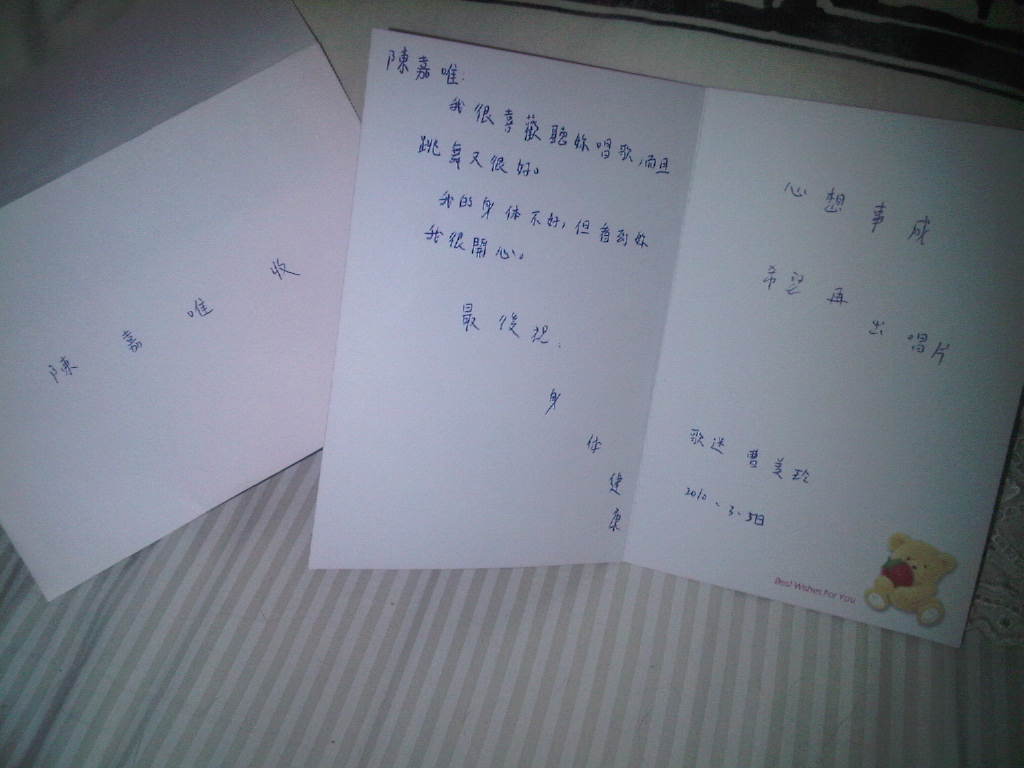 陳嘉唯 收
陳嘉唯:
我很喜歡聽妳唱歌,而且
跳舞又很好。
我的身体不好,但看到妳
我很開心。
最後祝:
身
体
健
康
心想事成
希望再
出唱片
歌迷 曹美玲
2010.3.5日
Best Wishes For You